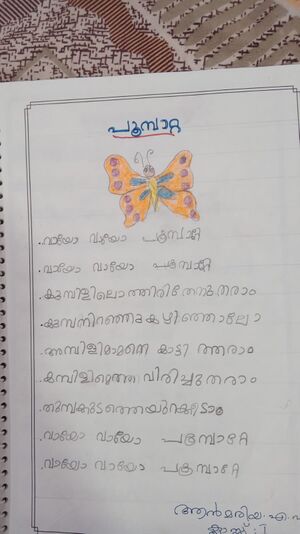 പൂമ്പാറ്റ
വായോ വായോ പൂമ്പാറ്റേ
വായോ വായോ പൂമ്പാറ്റേ
കുമ്പിളിലൊത്തിരി തേൻ തരാം
കുമ്പനിറഞ്ഞു കഴിഞ്ഞാലോ
അമ്പിളിമാമനെ കാട്ടി ത്തരാം
കമ്പിളിമെത്ത വിരിച്ചു തരാം
തുമ്പക്കുടത്തെയുറക്കീടാം
വായോ വായോ പൂമ്പാറ്റേ
വായോ വായോ പൂമ്പാറ്റേ
ആൻമരിയ. എ.
ക്ലാസ്സ് : I